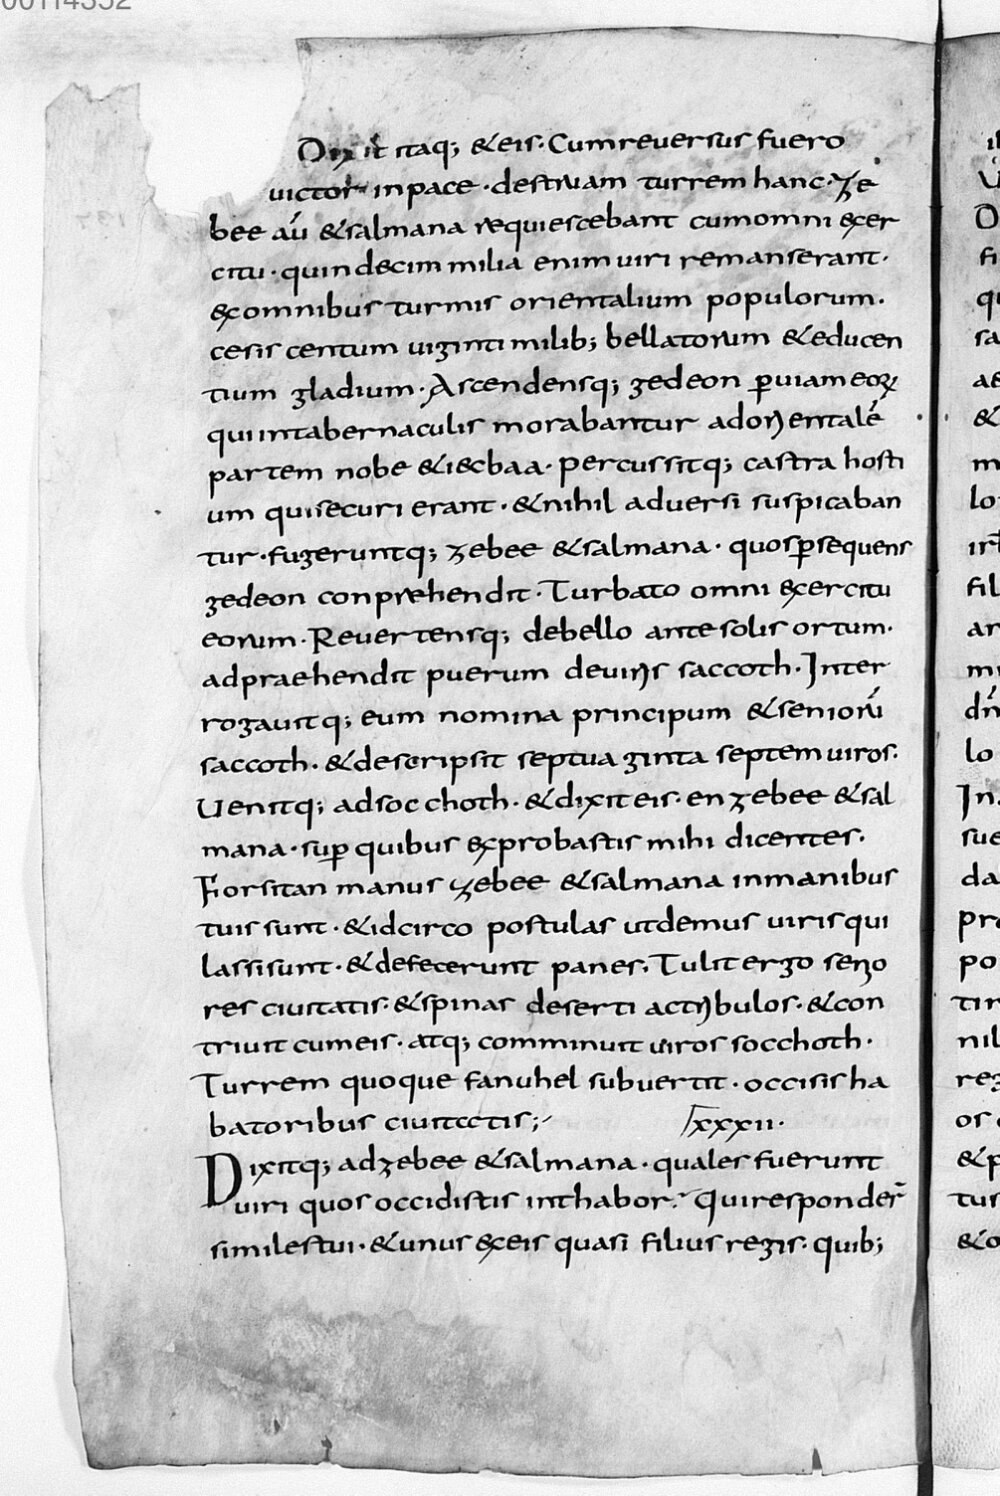 00114352
Dixit itaq; &eis· Cum reversus fuero
victor in pace · destruam turrem hanc· Ze
bee aū &salmana requiescebant cum omni excer
citu · quindecim milia enim viri remanserant·
ex omnibus turmis orientalium populorum·
cesis centum viginti milib; bellatorum &educen
tium gladium· Ascendensq; gedeon ꝑ viam eoꝝ
qui in tabernaculis morabantur ad orientalē
partem nobe &iecbaa· percussitq; castra hosti
um qui securi erant · &nihil adversi suspicaban
tur · fugeruntq; zebee &salmana · quos ꝑsequens
gedeon conprehendit · Turbato omni exercitu
eorum · Revertensq; de bello ante solis ortum·
adpraehendit puerum de viris saccoth · Inter
rogavitq; eum nomina principum &seniorū
saccoth · &descripsit septuaginta septem viros·
Venitq; ad socchoth · &dixit eis· en zebee &sal
mana · suꝑ quibus exprobastis mihi dicentes·
Forsitan manus zebee &salmana in manibus
tuis sunt · &idcirco postulas ut demus viris qui
lassi sunt · &defecerunt panes· Tulit ergo senio
res civitatis· &spinas deserti ac tribulos· &con
trivit cum eis· atq; comminuit viros socchoth·
Turrem quoque fanuhel subvertit · occisis ha
batoribus civitatis;
lxxxii·
Dixitq; ad zebee &salmana · quales fuerunt
viri quos occidistis in thabor? Qui responder̄
similes tui · &unus ex eis quasi filius regis· quib;